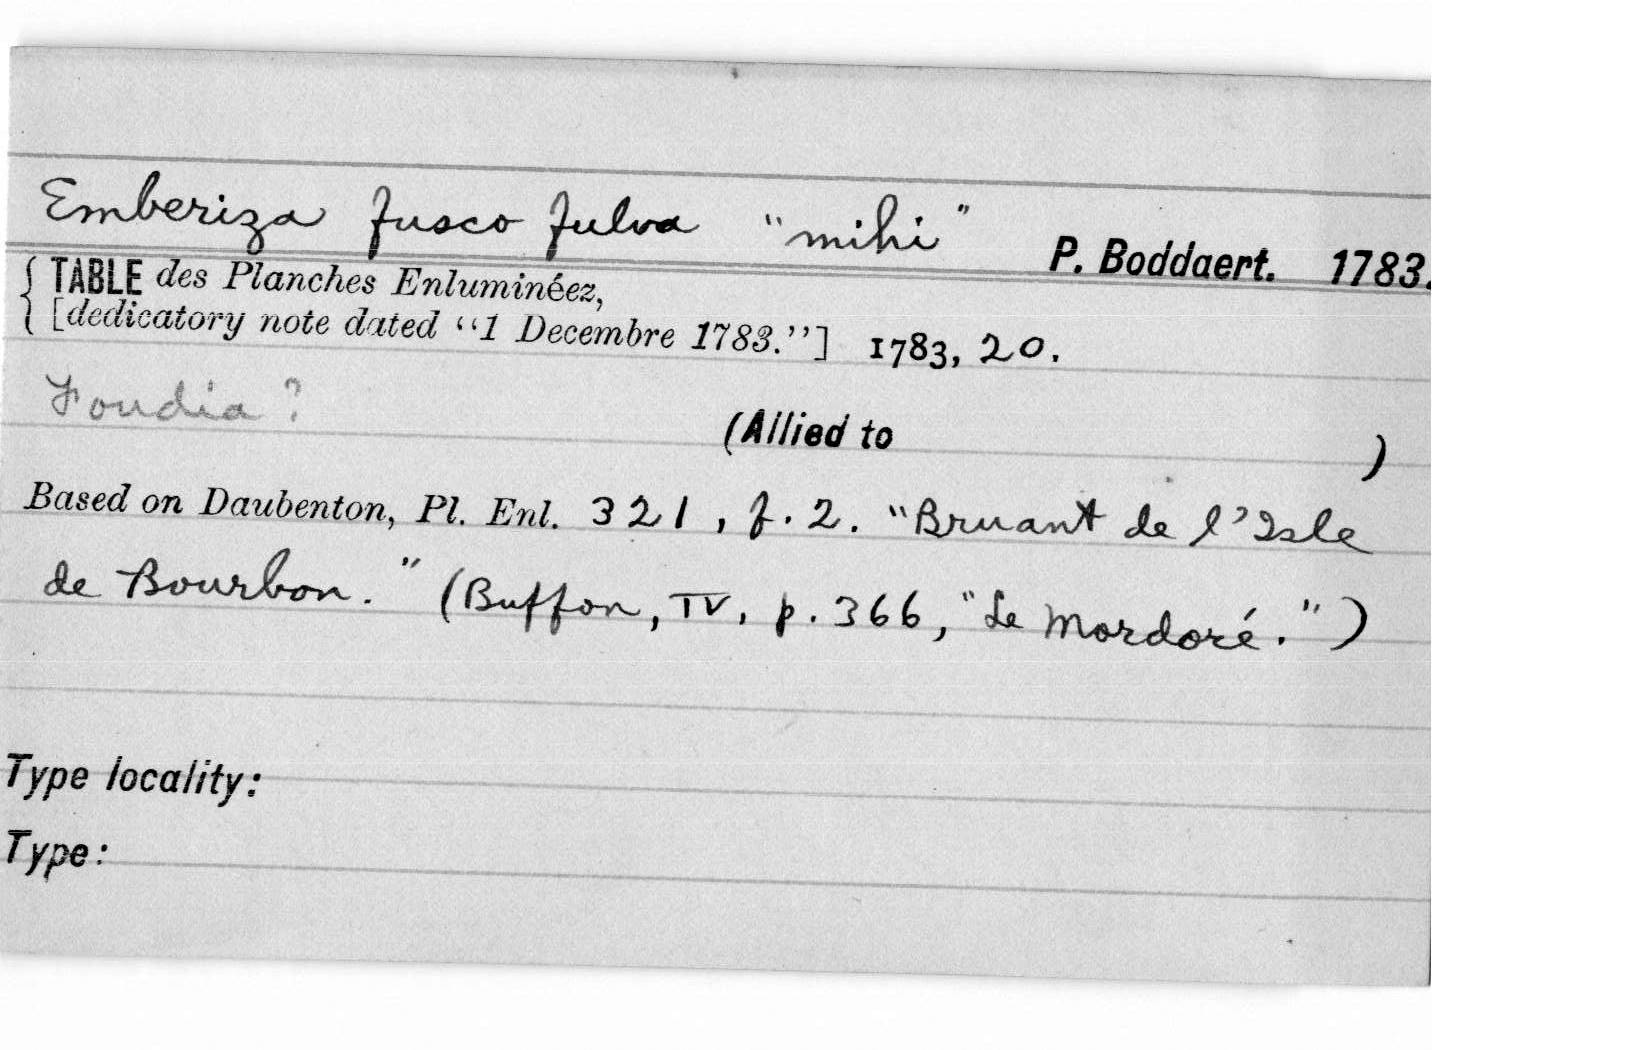 Emberiza fusco fulva "mihi" P. Boddaert. 1783.
{ TABLE des Planches Enluminéez,
[dedicatory note dated "1 Decembre 1783."] 1783, 20.
Foudia?
(Allied to )
Based on Daubenton, Pl. Enl. 321, f. 2. "Bruant de l'Isle
de Bourbon." (Buffon, IV, p. 366, "Le Mordoré.")
Type locality:
Type: